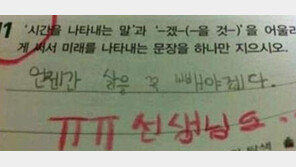 11 '시간을 나타내는 말'과 '-겠-(-을 것-)'을 어울리
게 써서 미래를 나타내는 문장을 하나만 지으시오.
언젠간 살을 꼭 빼야겠다.
ㅠㅠ 선생님도..